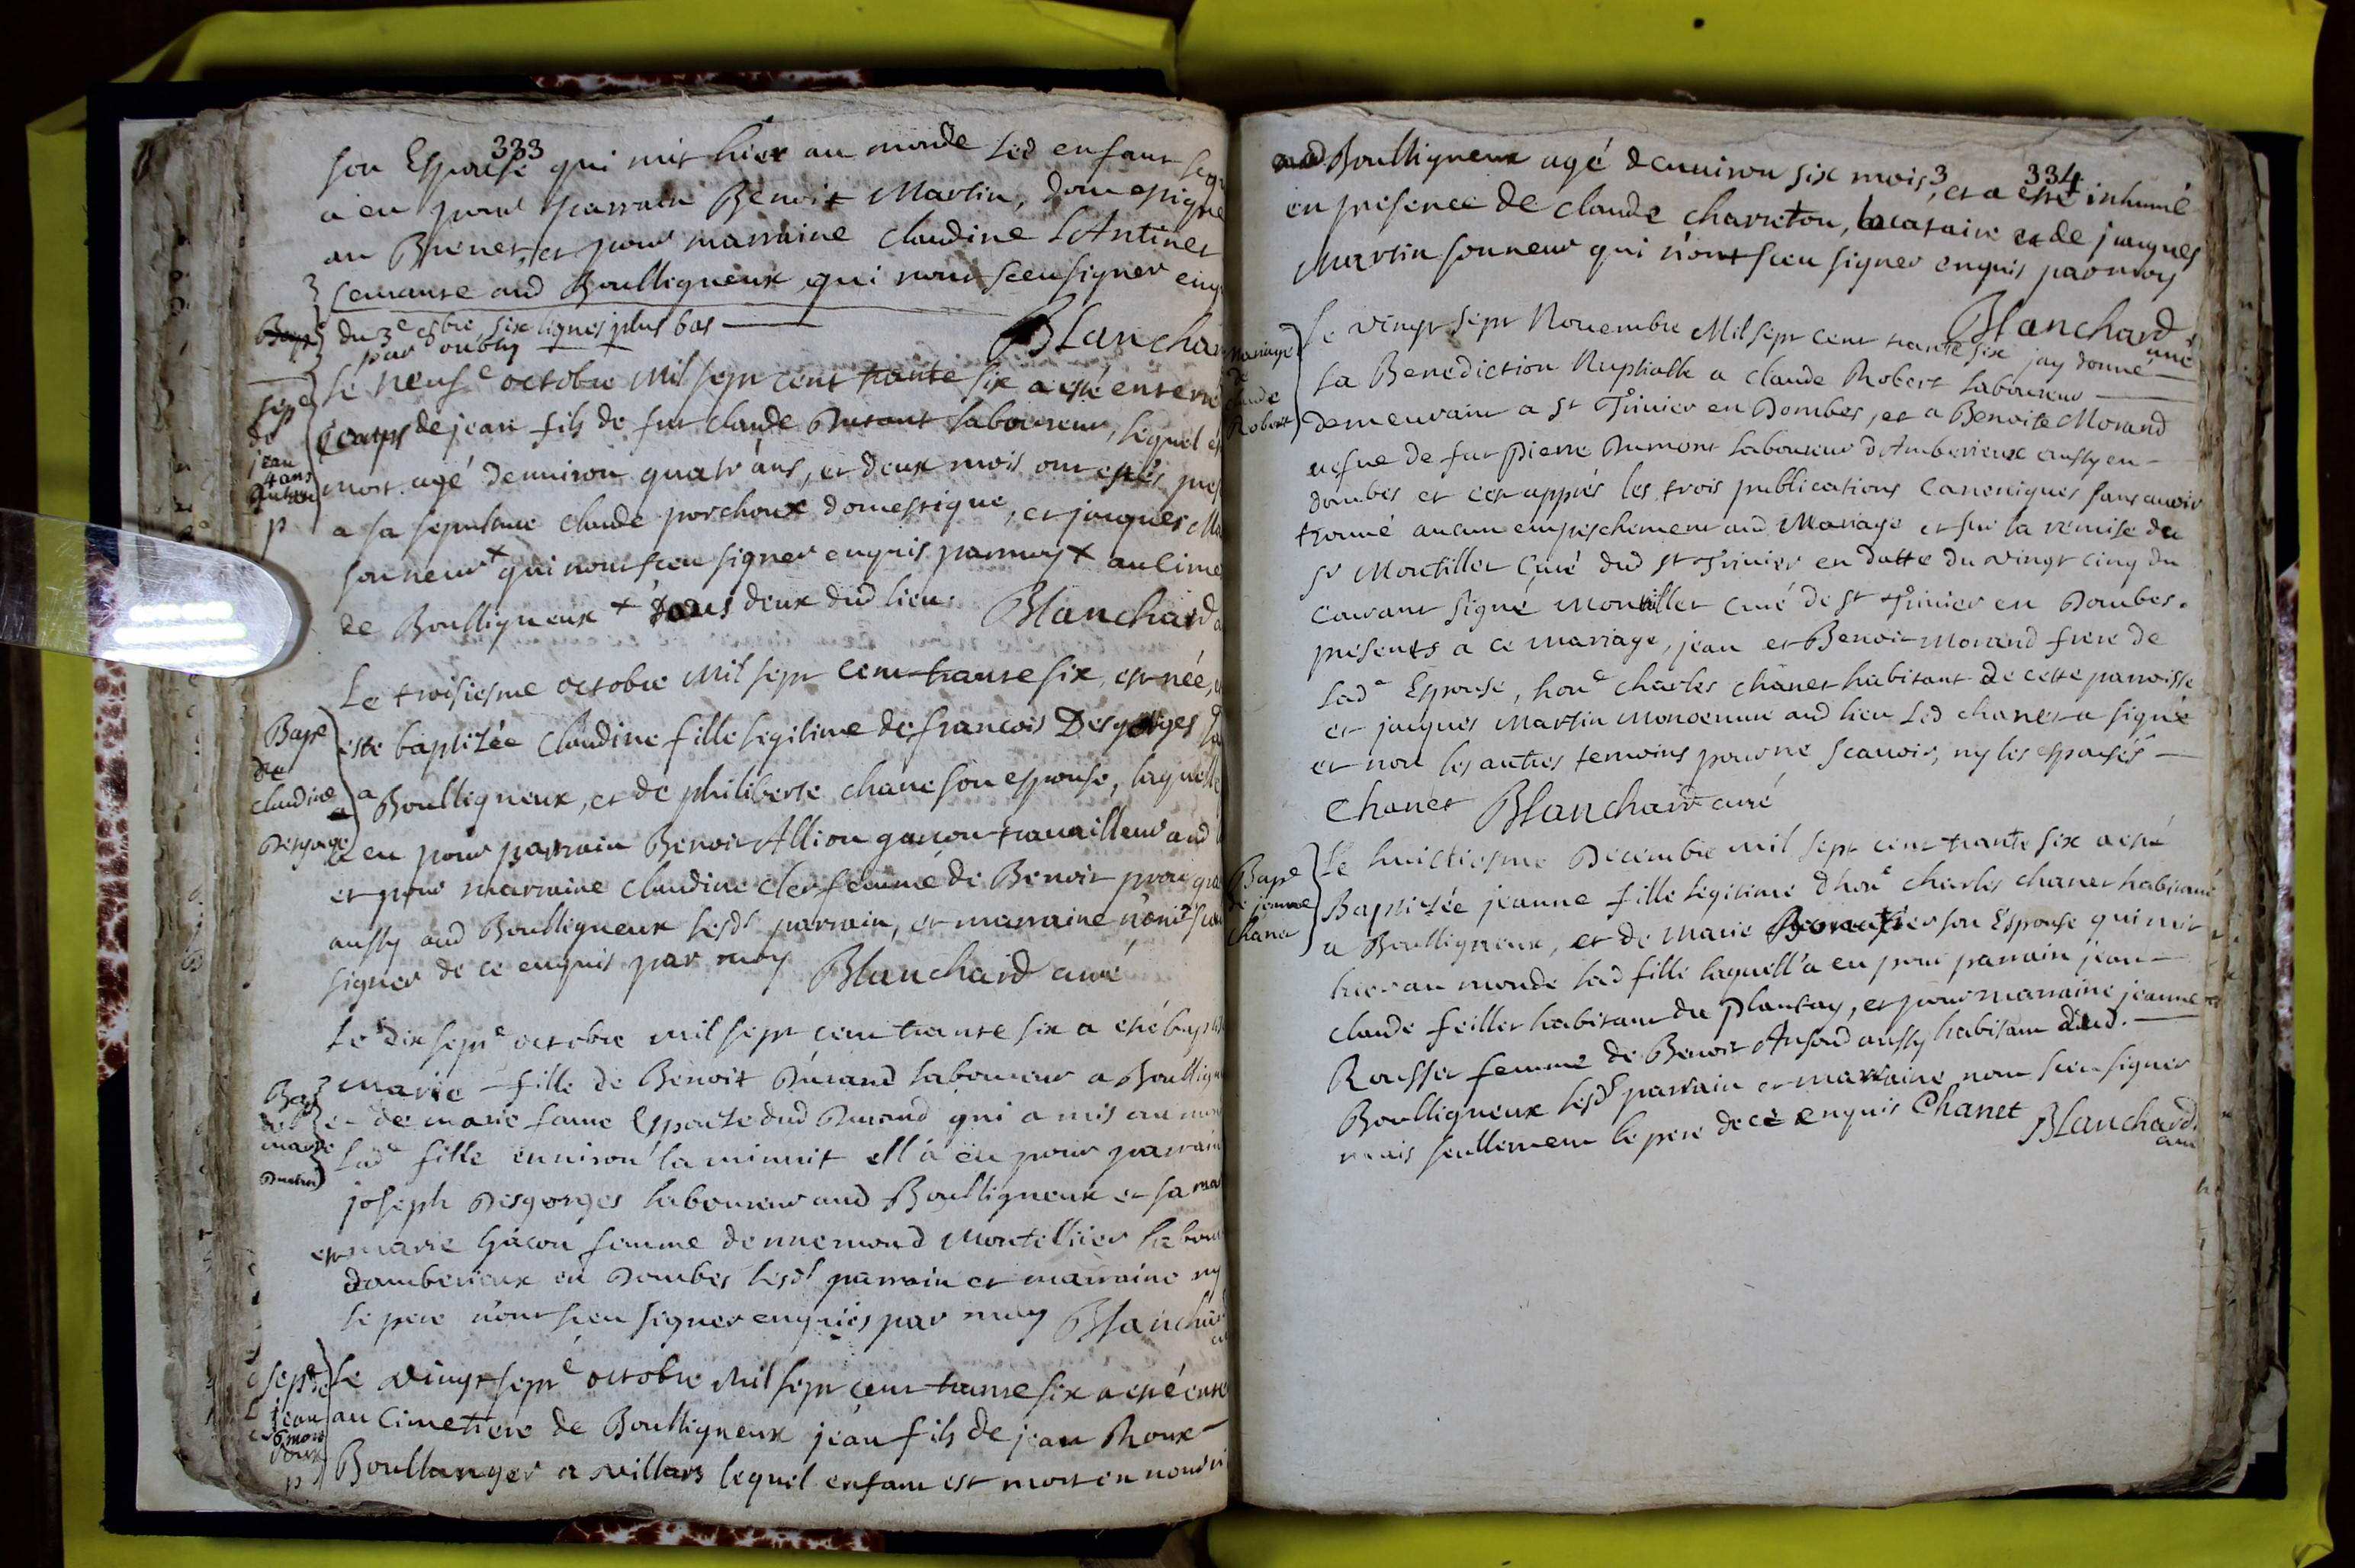 333
son Espouse qui mit hier au monde led enfant
a eu pour parrain Benoit Martin, domestique
au Brenet, et pour marraine Claudine
aud Boulligneux qui n'ont sceu signer
Bapt du 3e 8bre six lignes plus bas
par oubly
Blanchar
Le neufe octobre Mil sept cent trante six a esté enterré
sepe
de
jean
4 ans
p
Corps de jean fils de fut claude Durant laboureur, lequel est
mort agé d'environ quatr'ans, et deux mois ont estés
a sa sepulture claude porchoux domestique, et jacques Ma
sonneur + qui n'ont sceu signer enquis par moy + au Cime
de Boulligneux + Tous deux dud lieu. Blanchard
Le troisiesme octobre Mil sept cent trante six, est née,
Bape
de
Claudine
Desgorge
esté baptisée Claudine fille legitime de francois Desgorges
a Boulligneux, et de philiberte chane son espouse, laquelle
a eu pour parrain Benoit Allion garcon travailleur aud
et pour marraine claudine cler femme de Benoit
aussy aud Boulligneux lesds parrain, et marraine n'ont sceu
signer de ce enquis par moy Blanchard curé
Le dix septe octobre mil sept cent trante six a esté baptis
Bap
de
marie
Durand
marie fille de Benoit Durand laboureur a Boullign
et de marie fame Espouse dud Durand qui a mis au mon
lade fille environ la minuit ell'a eü pour parrain
joseph Desgorges laboureur aud Boulligneux et sa mar
est marie Gacon femme d'ennemond Montellier labour
d'amberieux en Dombes lesds parrain et marraine ny
le pere n'ont sceu signer enquis par moy Blanchard
sepe
de
jean
6 mois
roux
p
Le vingt septe octobre Mil sept cent trante six a esté ente
au Cimetiere de Boulligneux jean fils de jean Roux
Boullanger a villars lequel enfant est mort en nourri
334
aud Boulligneux agé d'environ six mois, et a esté inhumé
en presence de claude charreton, locataire et de jacques
Martin sonneur qui n'ont sceu signer enquis par moy
Blanchard
curé
Mariage
de
claude
Robert
Le vingt sept Novembre Mil sept cent trante six jay donné
la Benediction Nuptialle a claude Robert laboureur
demeurant a St Trivier en Dombes, et a Benoite Morand
vefve de fut pierre Dumont laboureur d'Amberieux aussy en
dombes et ce apprés les trois publications Canoniques sans avoir
trouvé aucun empeschement aud Mariage et sur la remise du
Sr Montillet Curé dud St Trivier en datte du vingt cinq du
Courant signé Montillet curé de St Trivier en Dombes.
presents a ce mariage, jean et Benoit morand frere de
lade Espouse, hone charles chanet habitant de cette parroisse
et jacques Martin aud lieu led chanet a signé
et non les autres temoins pour ne scavoir, ny les espousés
Chanet Blanchard curé
Bape
de jeanne
Chanet
Le huictiesme Decembre mil sept cent trante six a esté
Baptisée jeanne fille legitime d'hone charles chanet habitant
a Boulligneux, et de marie son Espouse qui mit
hier au monde lad fille laquell'a eu pour parrain jean
claude feillet habitant du plantay, et pour marraine jeanne
Rousset femme de Benoit Ansoud aussy habitant dud.
Boulligneux lesds parrain et marraine n'ont sceu signer
mais seullement le pere de ce enquis Chanet Blanchard
curé